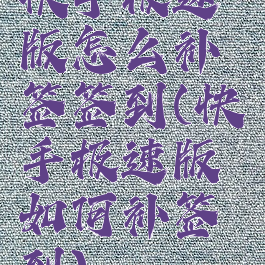 快手极速
版怎么补
签签到(快
手极速版
如何补签
到)